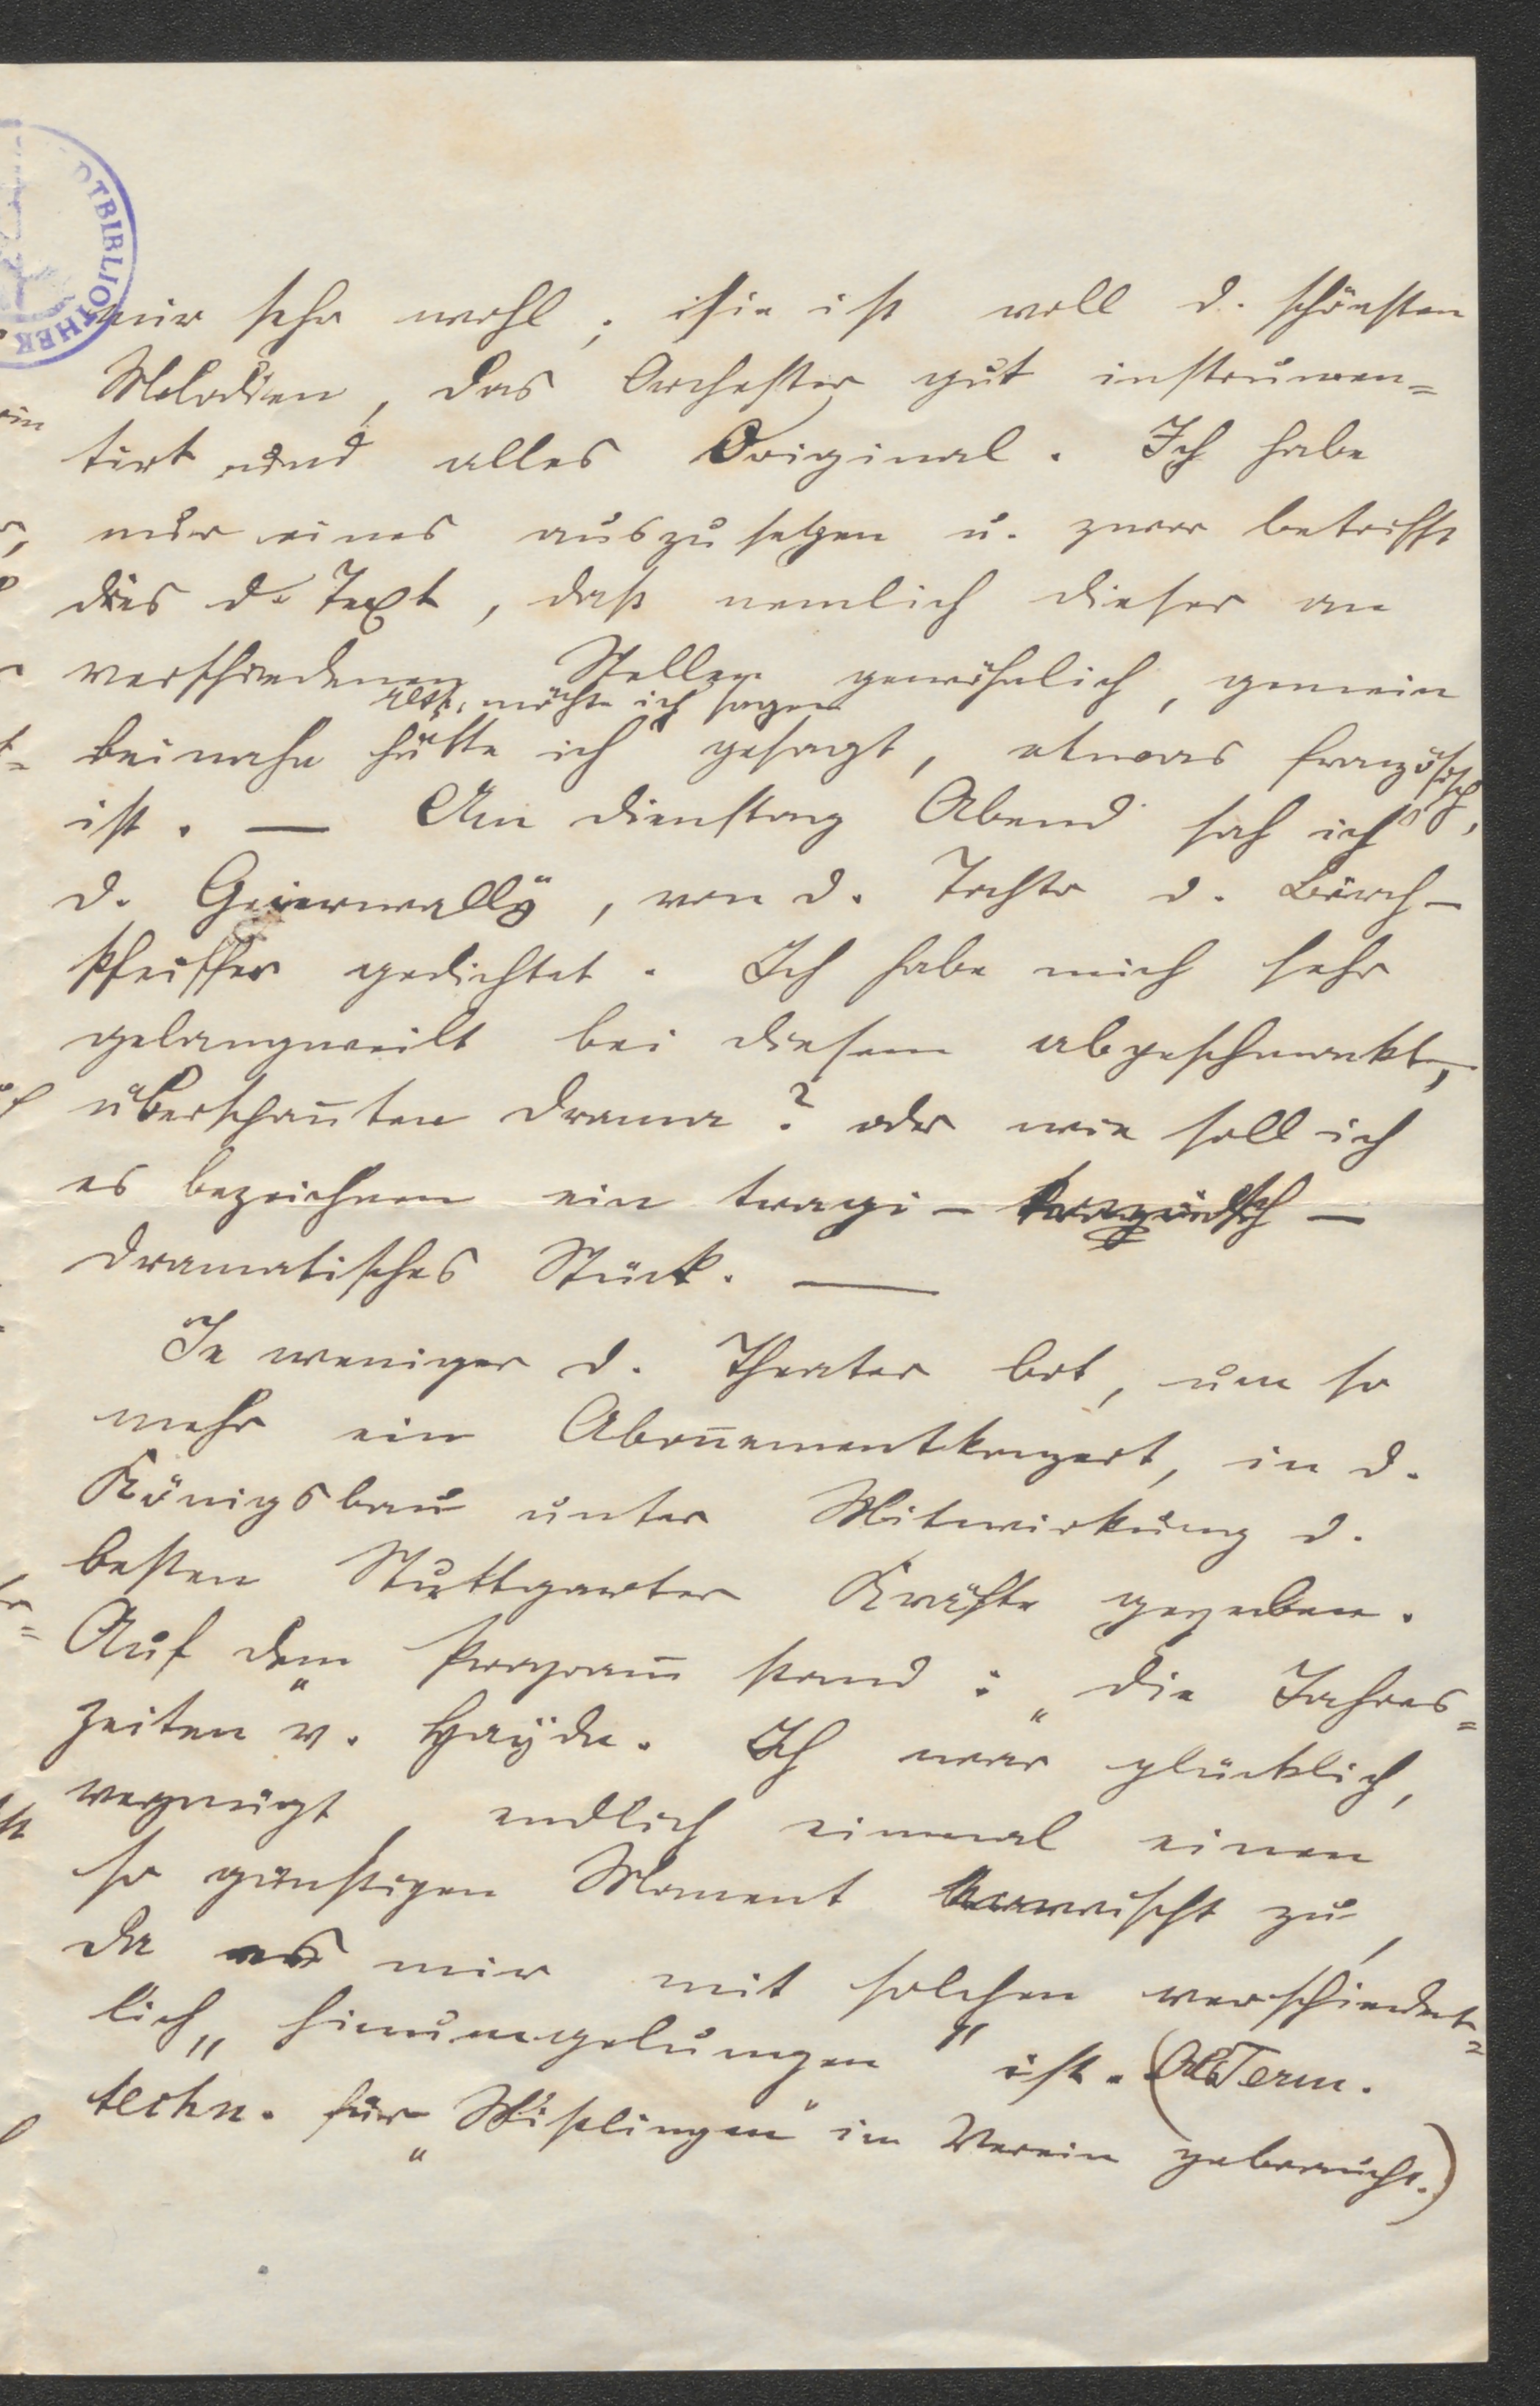 DTBIBLIOTHEK
mir sehr wohl; sie ist voll d. schönsten
Melodien, das Orchester gut instrumen=
tirt und alles Original. Ich habe
nur eines auszusetzen u. zwar betrifft
dies d. Text, daß nemlich dieser an
verschiedenen Stellen gewöhnlich, gemein
möchte ich sagen
beinahe hätte ich gesagt, etwas französisch,
ist. — Am Dienstag Abend sah ich
d. Geierwally, von d. Tochter d. Birch-
Pfeiffer gedichtet. Ich habe mich sehr
gelangweilt bei diesem abgeschmackt,
überspannten Drama? oder wie soll ich
es bezeichnen ein tragi- —
dramatisches Stück. —
Je weniger d. Theater bot, um so
mehr ein Abonnementkonzert, in d.
Königsbau unter Mitwirkung d.
besten Stuttgarter Kräfte gegeben.
Auf dem Program̄ stand: „die Jahres=
zeiten" v. Haydn. Ich war glücklich,
vergnügt, endlich einmal einen
so günstigen Moment erwischt zu,
da es mir mit solchen verschiedent=
lich „hinumgelungen" ist. (Als Term.
techn. für „Mißlingen" im Verein gebraucht.)